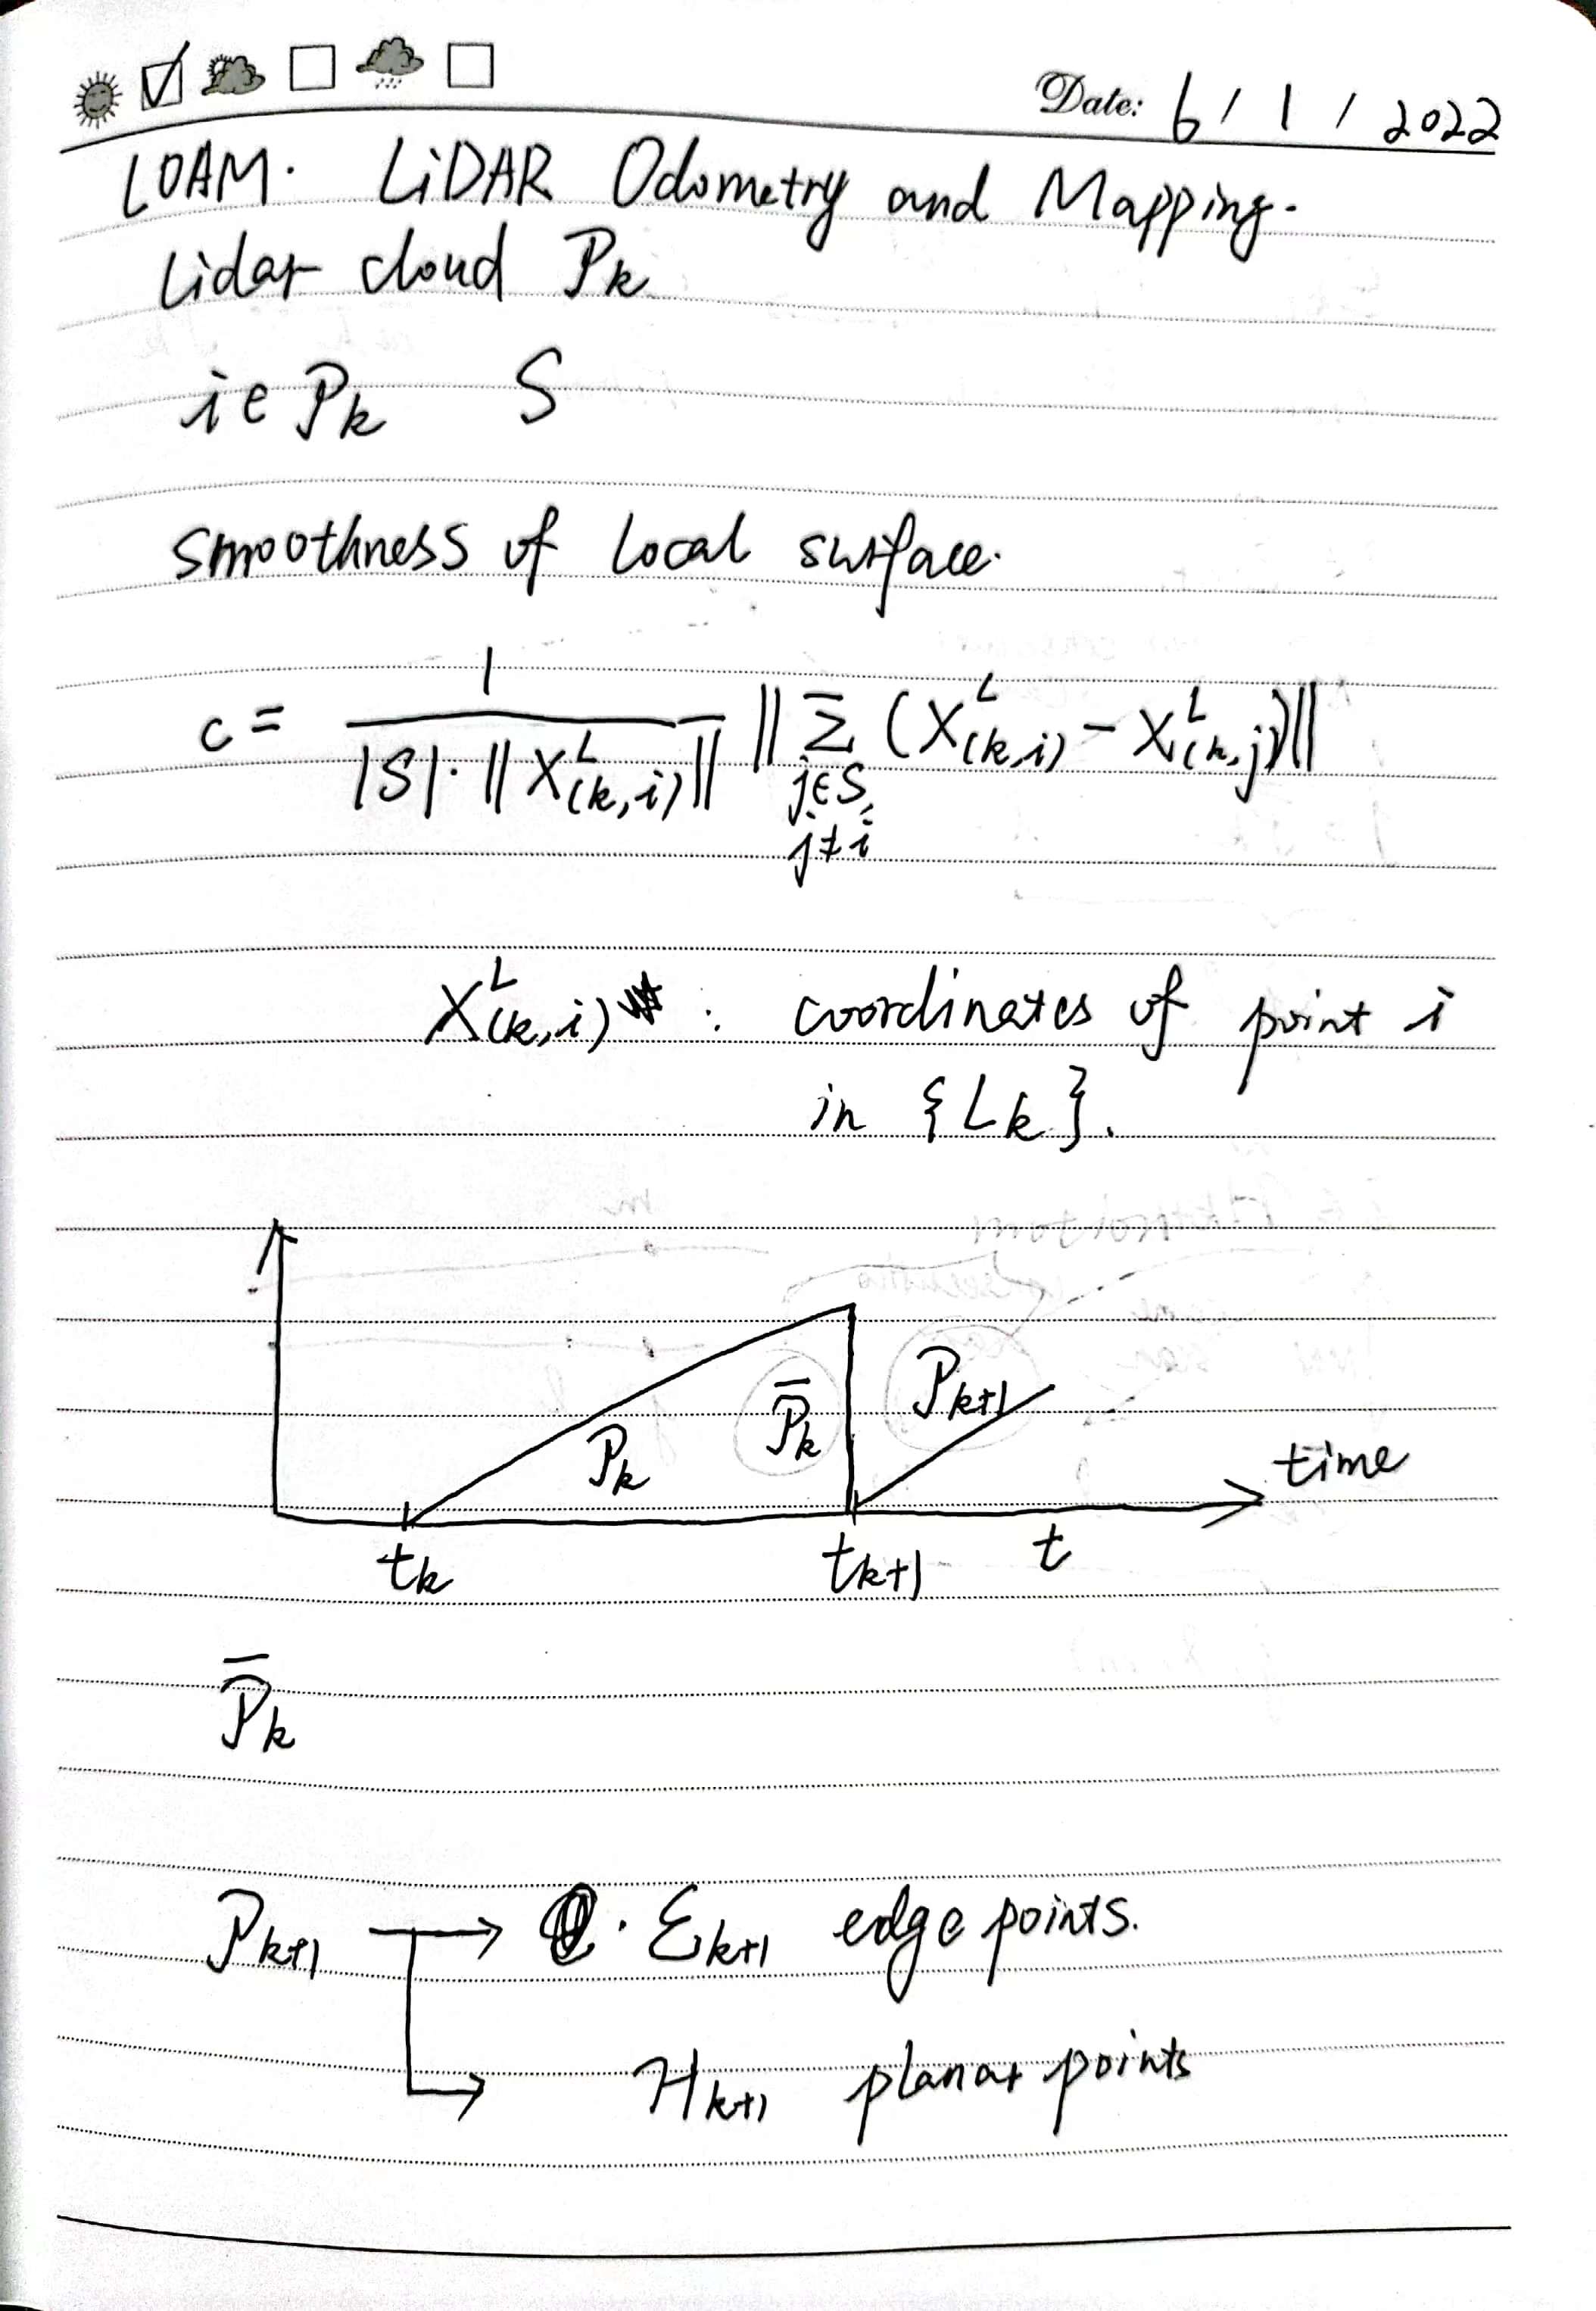 Date: 6 / 1 / 2022
LOAM. LiDAR Odometry and Mapping.
Lidar cloud P_k
i ∈ P_k S
smoothness of local surface.
c = 1 / (|S| · ||X^L_(k,i)||) || Σ_{j∈S, j≠i} (X^L_(k,i) - X^L_(k,j)) ||
X^L_(k,i) : coordinates of point i
in {L_k}.
P_k P̄_k P_k+1
time
t_k t_k+1 t
P̄_k
P_k+1 → · Ɛ_k+1 edge points.
→ H_k+1 planar points